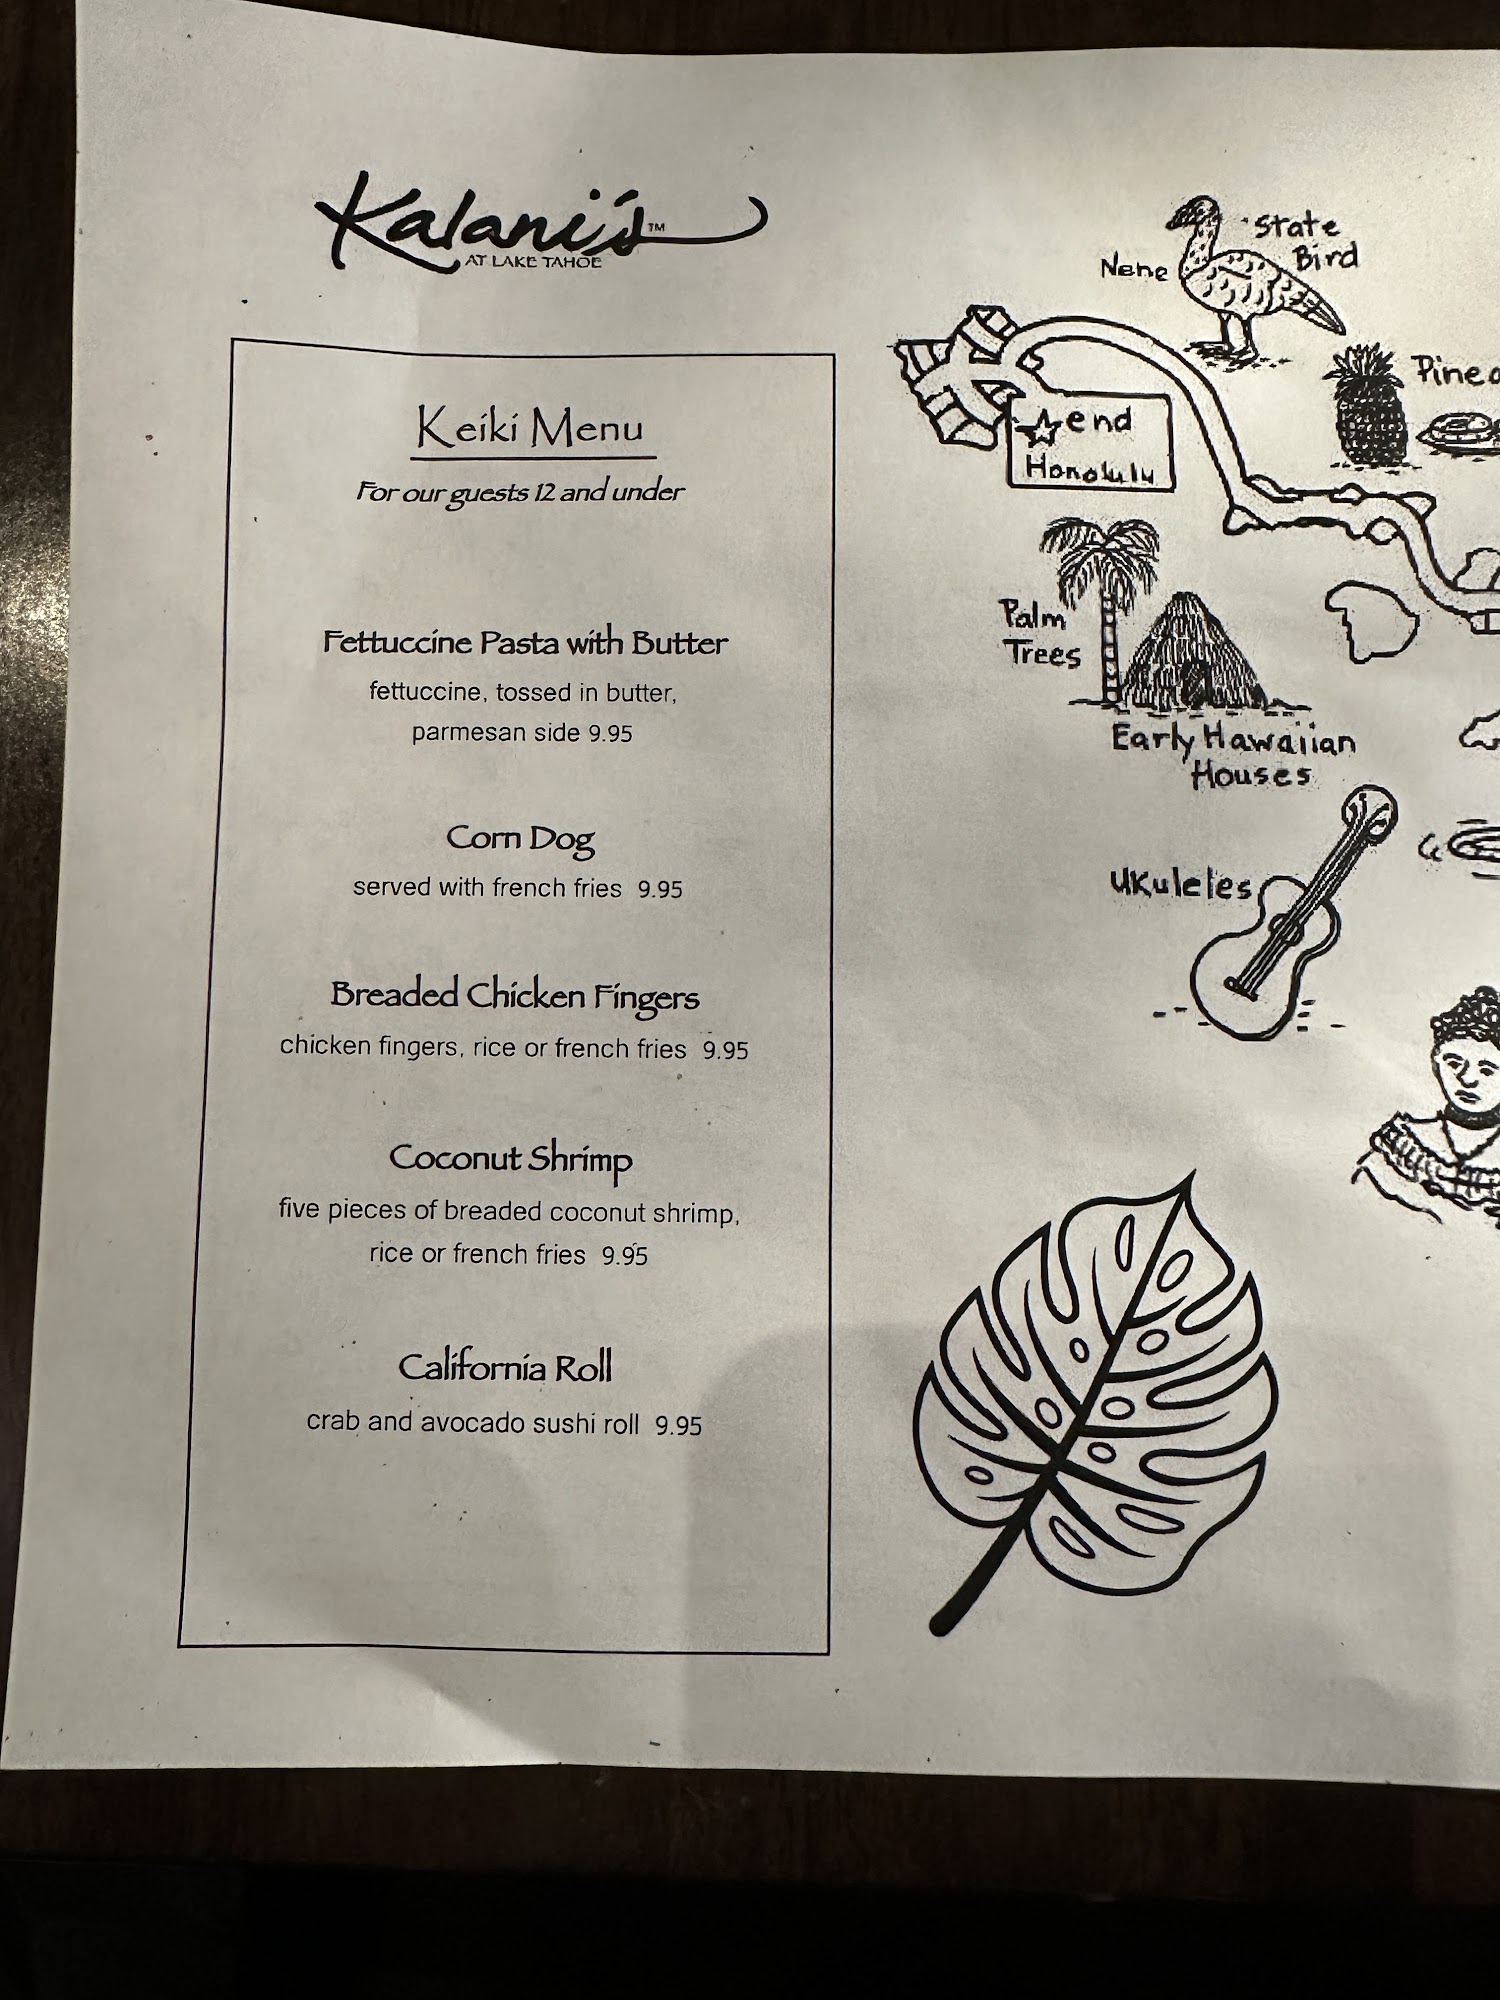 Kalani's™
AT LAKE TAHOE
Keiki Menu
For our guests 12 and under
Fettuccine Pasta with Butter
fettuccine, tossed in butter,
parmesan side 9.95
Corn Dog
served with french fries 9.95
Breaded Chicken Fingers
chicken fingers, rice or french fries 9.95
Coconut Shrimp
five pieces of breaded coconut shrimp,
rice or french fries 9.95
California Roll
crab and avocado sushi roll 9.95
State
Bird
Nene
end
Honolulu
Palm
Trees
Early Hawaiian
Houses
Ukuleles